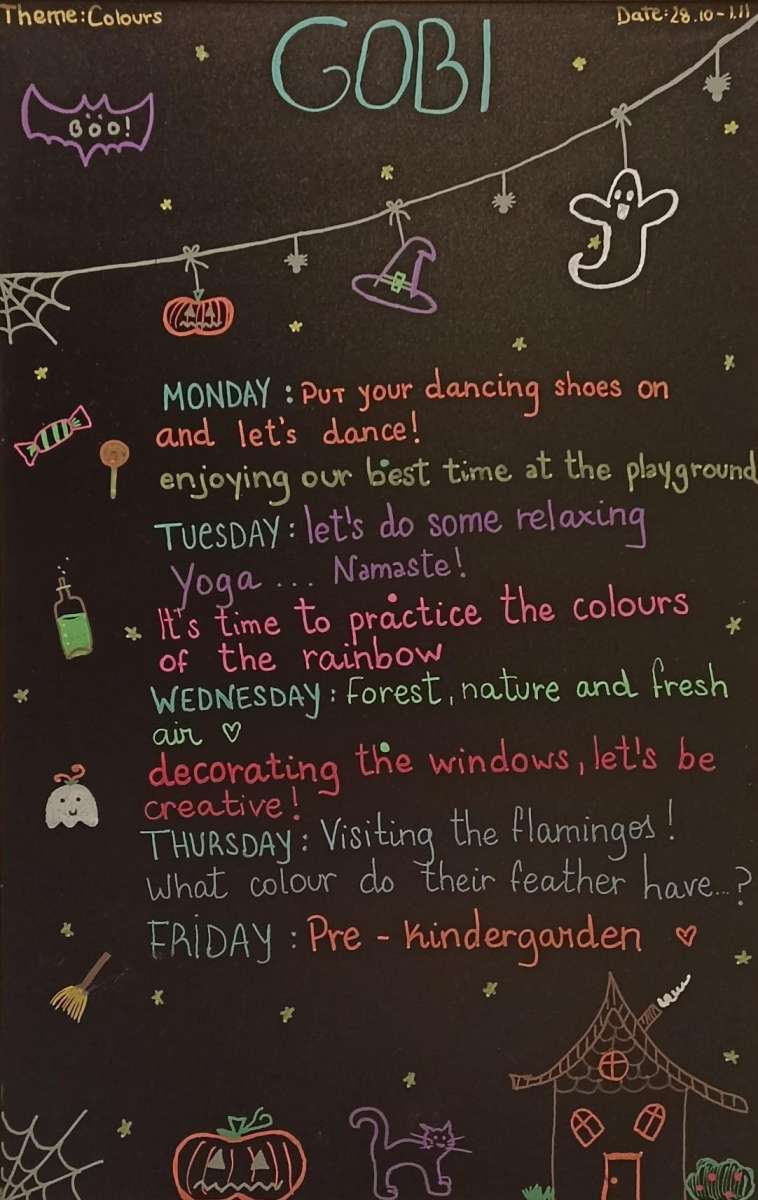 Theme: Colours
Date: 28.10-1.11
GOBI
BÖO!
MONDAY : Put your dancing shoes on
and let's dance!
enjoying our best time at the playground
TUESDAY : let's do some relaxing
Yoga ... Namaste!
It's time to practice the colours
of the rainbow
WEDNESDAY : Forest, nature and fresh
air ♡
decorating the windows, let's be
creative!
THURSDAY : Visiting the flamingos!
What colour do their feather have...?
FRIDAY : Pre - kindergarden ♡